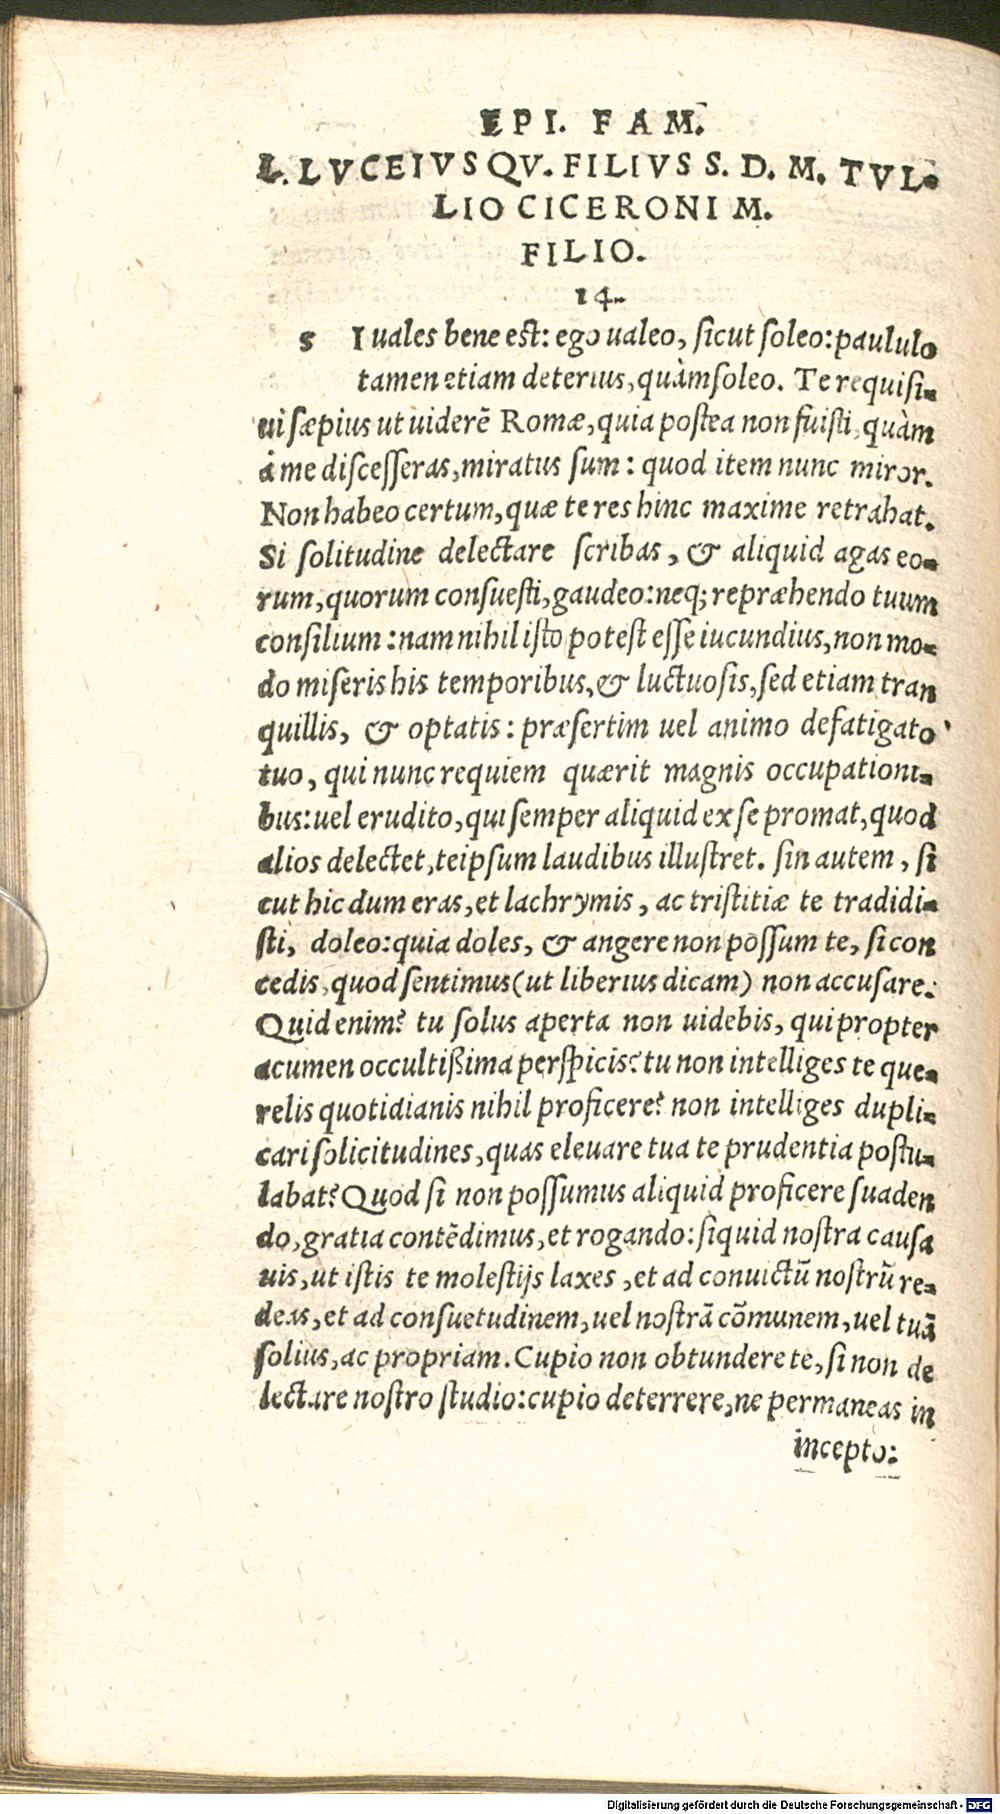 EPI. FAM.
L. LVCEIVS QV. FILIVS S. D. M. TVL-
LIO CICERONI M.
FILIO.
14.
s I uales bene est: ego ualeo, sicut soleo: paululo
tamen etiam deterius, quàm soleo. Te requisi-
ui sæpius ut uiderẽ Romæ, quia postea non fuisti, quàm
à me discesseras, miratus sum: quod item nunc miror.
Non habeo certum, quæ te res hinc maxime retrahat.
Si solitudine delectare scribas, & aliquid agas eo-
rum, quorum consuesti, gaudeo: neq; repræhendo tuum
consilium: nam nihil isto potest esse iucundius, non mo-
do miseris his temporibus, & luctuosis, sed etiam tran
quillis, & optatis: præsertim uel animo defatigato
tuo, qui nunc requiem quærit magnis occupationi-
bus: uel erudito, qui semper aliquid ex se promat, quod
alios delectet, teipsum laudibus illustret. sin autem, si
cut hic dum eras, et lachrymis, ac tristitiæ te tradidi-
sti, doleo: quia doles, & angere non possum te, si con
cedis, quod sentimus (ut liberius dicam) non accusare.
Quid enim? tu solus aperta non uidebis, qui propter
acumen occultißima perspicis? tu non intelliges te que-
relis quotidianis nihil proficere? non intelliges dupli-
cari solicitudines, quas eleuare tua te prudentia postu-
labat? Quod si non possumus aliquid proficere suaden
do, gratia contẽdimus, et rogando: siquid nostra causa
uis, ut istis te molestijs laxes, et ad conuictũ nostrũ re-
deas, et ad consuetudinem, uel nostrã cõmunem, uel tuã
solius, ac propriam. Cupio non obtundere te, si non de
lectare nostro studio: cupio deterrere, ne permaneas in
incepto:
Digitalisierung gefördert durch die Deutsche Forschungsgemeinschaft - DFG